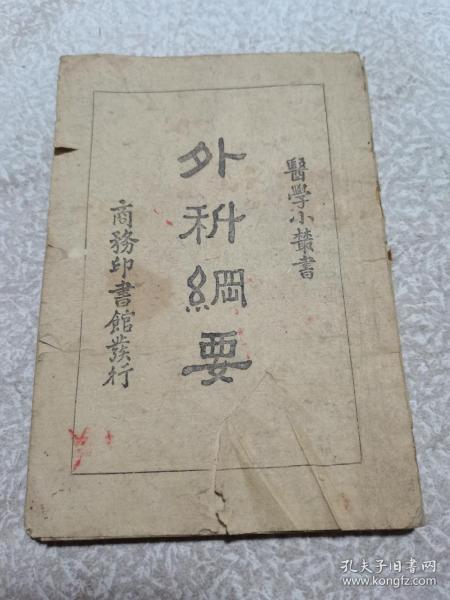 醫學小叢書
外科綱要
商務印書館發行
孔夫子旧书网
www.kongfz.com